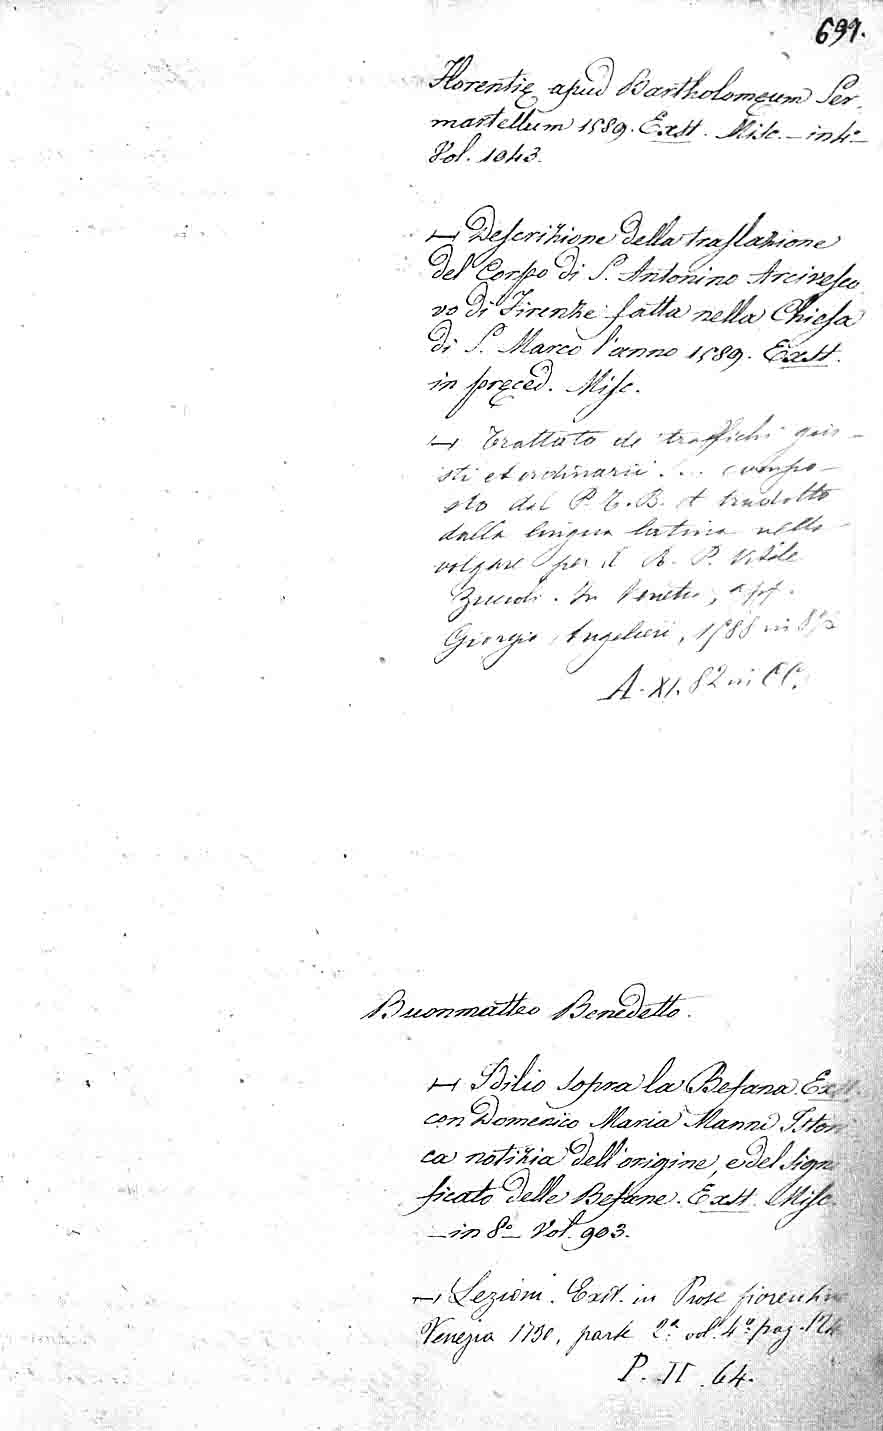 691.
Florentię apud Bartholomęum Ser
martellum 1589. Exst. Misc. in 4º
Vol. 1043.
⊢ Descrizione della traslazione
del Corpo di S. Antonino Arcivesco
vo di Firenze fatta nella Chiesa
di S. Marco l'anno 1589. Exst.
in pręced. Misc.
⊢ Trattato de traffichi gius
sti et ordinarii ... compo-
sto dal P. T. B. et tradotto
dalla lingua latina nella
volgare per il R. P. Vitale
Zuccoli. In Venetia, app.
Giorgio Angelieri, 1588 in 8º
A. XI. 82 in CC.
Buonmatteo Benedetto.
⊢ Idilio sopra la Befana. Exst.
con Domenico Maria Manni Istori
ca notizia dell'origine, e del signi
ficato delle Befane. Exst. Misc.
in 8º Vol. 903.
⊢ Lezioni. Exst. in Prose fiorentine
Venezia 1730, parte 2ª vol. 4º pag. 124
P. II. 64.